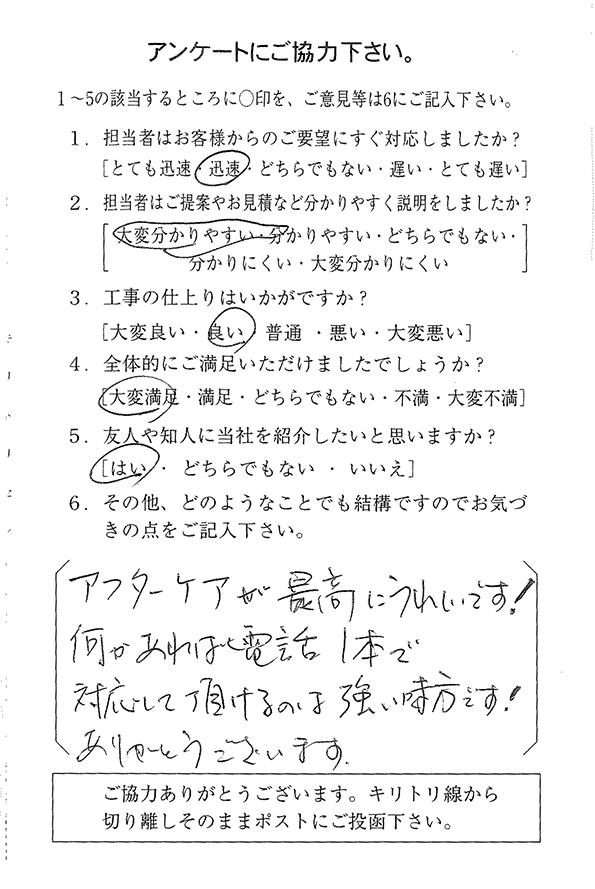 アンケートにご協力下さい。
1〜5の該当するところに○印を、ご意見等は6にご記入下さい。
1. 担当者はお客様からのご要望にすぐ対応しましたか?
[とても迅速・迅速・どちらでもない・遅い・とても遅い]
2. 担当者はご提案やお見積など分かりやすく説明をしましたか?
[大変分かりやすい・分かりやすい・どちらでもない・
分かりにくい・大変分かりにくい]
3. 工事の仕上りはいかがですか?
[大変良い・良い・普通・悪い・大変悪い]
4. 全体的にご満足いただけましたでしょうか?
[大変満足・満足・どちらでもない・不満・大変不満]
5. 友人や知人に当社を紹介したいと思いますか?
[はい・どちらでもない・いいえ]
6. その他、どのようなことでも結構ですのでお気づ
きの点をご記入下さい。
アフターケアが最高にうれしいです!
何かあれば電話1本で
対応して頂けるのは強い味方です!
ありがとうございます.
ご協力ありがとうございます。キリトリ線から
切り離しそのままポストにご投函下さい。